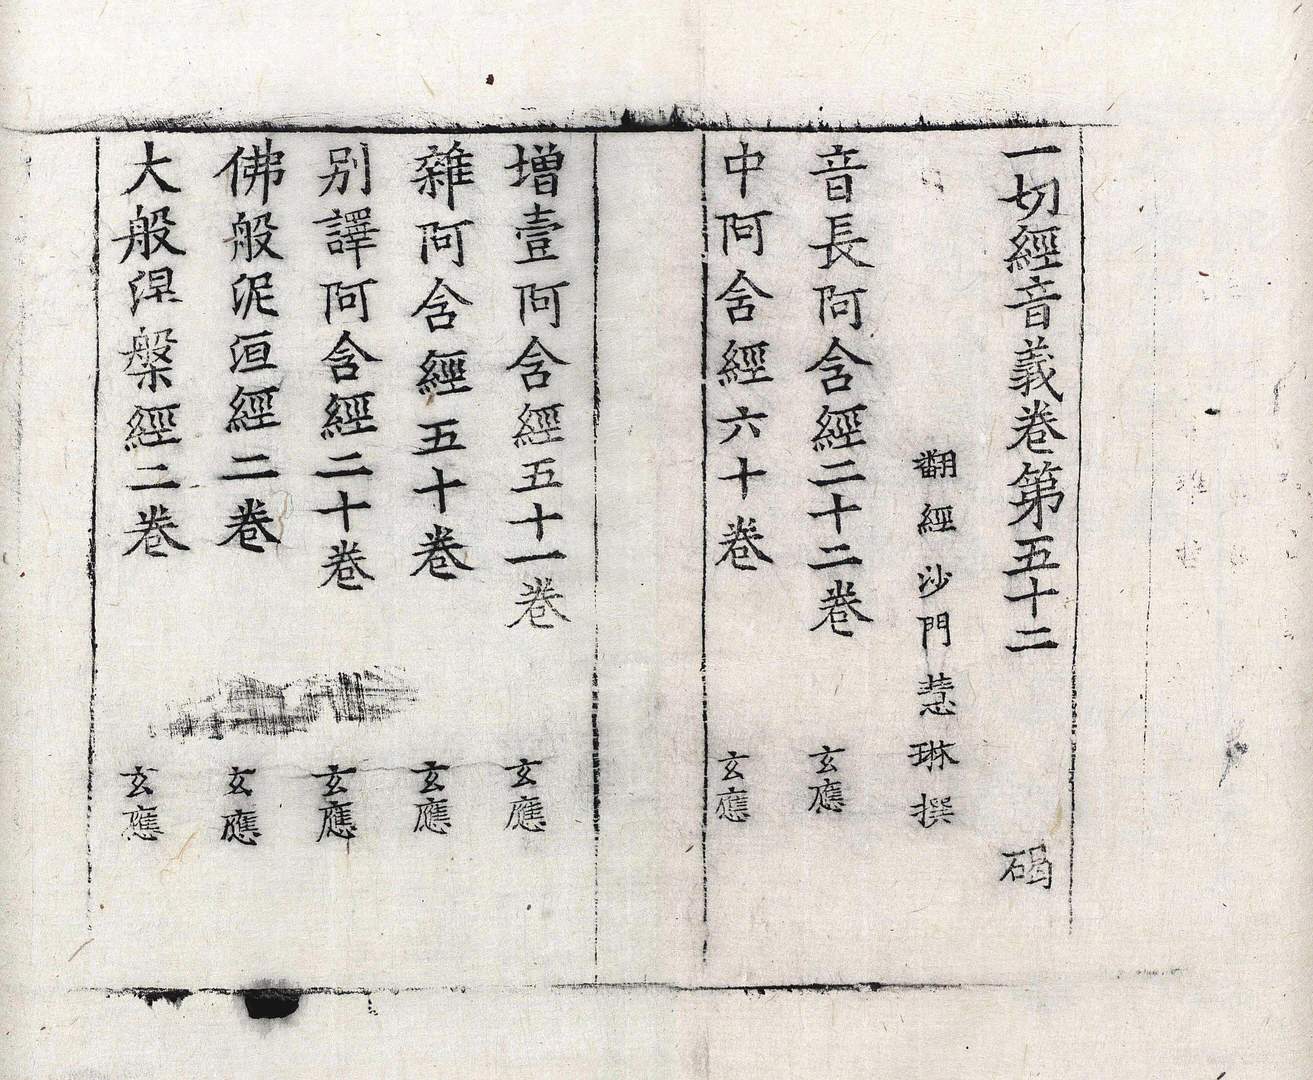 一切經音義卷第五十二 碣
翻經沙門慧琳撰
音長阿含經二十二卷 玄應
中阿含經六十卷 玄應
增壹阿含經五十一卷 玄應
雜阿含經五十卷 玄應
别譯阿含經二十卷 玄應
佛般泥洹經二卷 玄應
大般涅槃經二卷 玄應